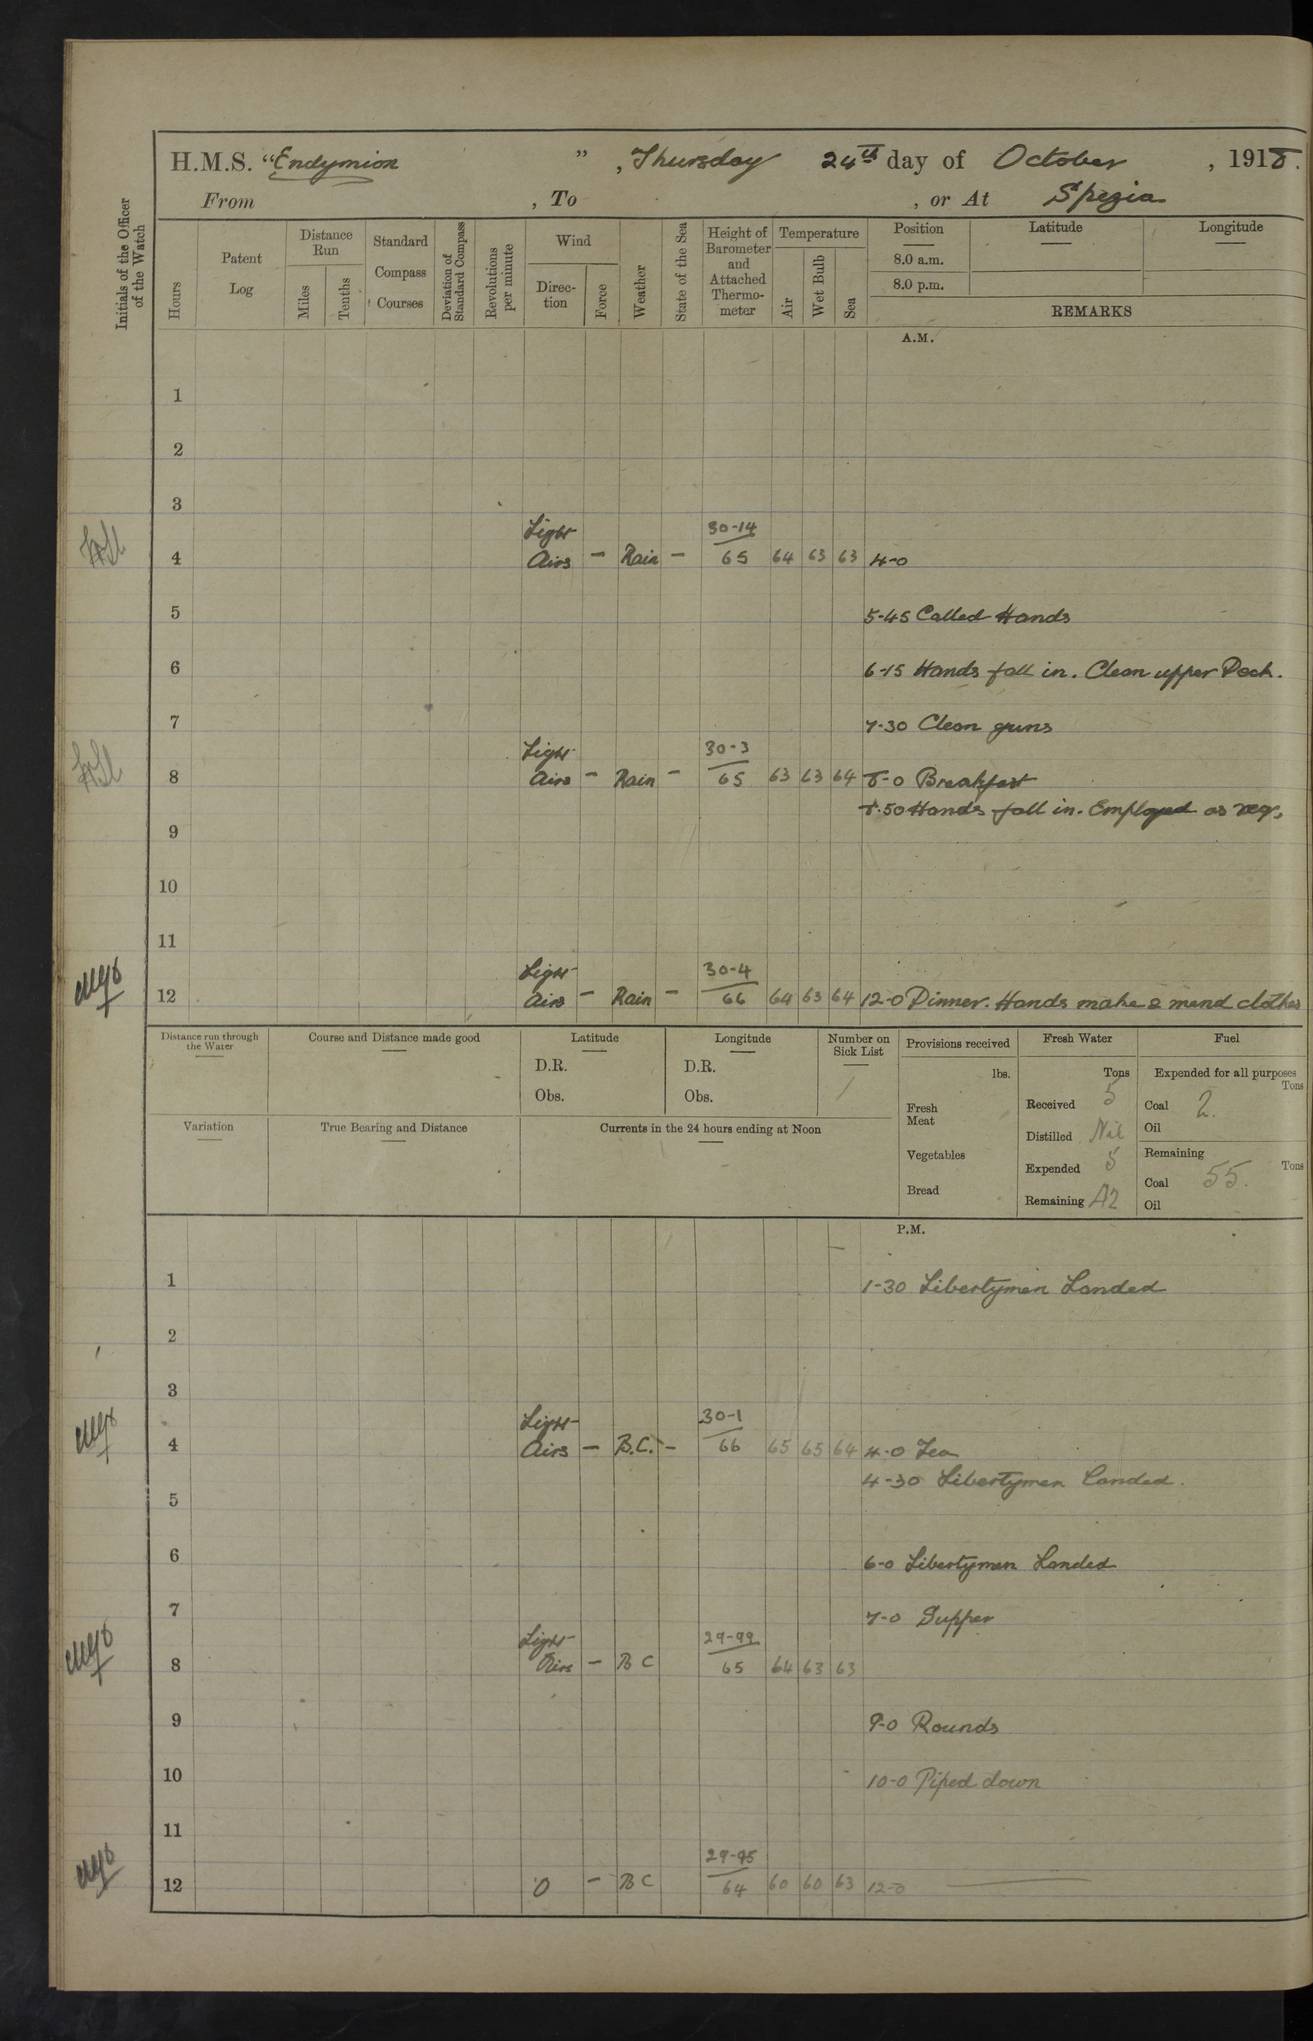 H.M.S. "Endymion ", Thursday 24th day of October, 1918.
From , To , or At Spezia
Initials of the Officer of the Watch
Hours
Patent Log
Distance Run
Miles
Tenths
Standard Compass Courses
Deviation of Standard Compass
Revolutions per minute
Wind
Direction
Force
Weather
State of the Sea
Height of Barometer and Attached Thermometer
Temperature
Air
Wet Bulb
Sea
Position
8.0 a.m.
8.0 p.m.
Latitude
Longitude
REMARKS
A.M.
1
2
3
Light 30-14
4 Airs - Rain - 65 64 63 63 4-0
5 5-45 Called Hands
6 6-15 Hands fall in. Clean upper Deck.
7 7-30 Clean guns
Light 30-3
8 Airs - Rain - 65 63 63 64 8-0 Breakfast
8.50 Hands fall in. Employed as req.
9
10
11
Light 30-4
12 Airs - Rain - 66 64 63 64 12-0 Dinner. Hands make & mend clothes
Distance run through the Water
Course and Distance made good
Latitude
D.R.
Obs.
Longitude
D.R.
Obs.
Number on Sick List
1
Variation
True Bearing and Distance
Currents in the 24 hours ending at Noon
Provisions received
lbs.
Fresh Meat
Vegetables
Bread
Fresh Water
Tons
Received 5
Distilled Nil
Expended 5
Remaining 42
Fuel
Expended for all purposes
Tons
Coal 2.
Oil
Remaining
Tons
Coal 55.
Oil
P.M.
1 1-30 Libertymen Landed
2
3
Light 30-1
4 Airs - B.C. - 66 65 65 64 4-0 Tea
4-30 Libertymen Landed.
5
6 6-0 Libertymen Landed
7 7-0 Supper
Light 29-99
8 Airs - B C 65 64 63 63
9 9-0 Rounds
10 10-0 Piped down
11
29-95
12 0 - B C 64 60 60 63 12-0